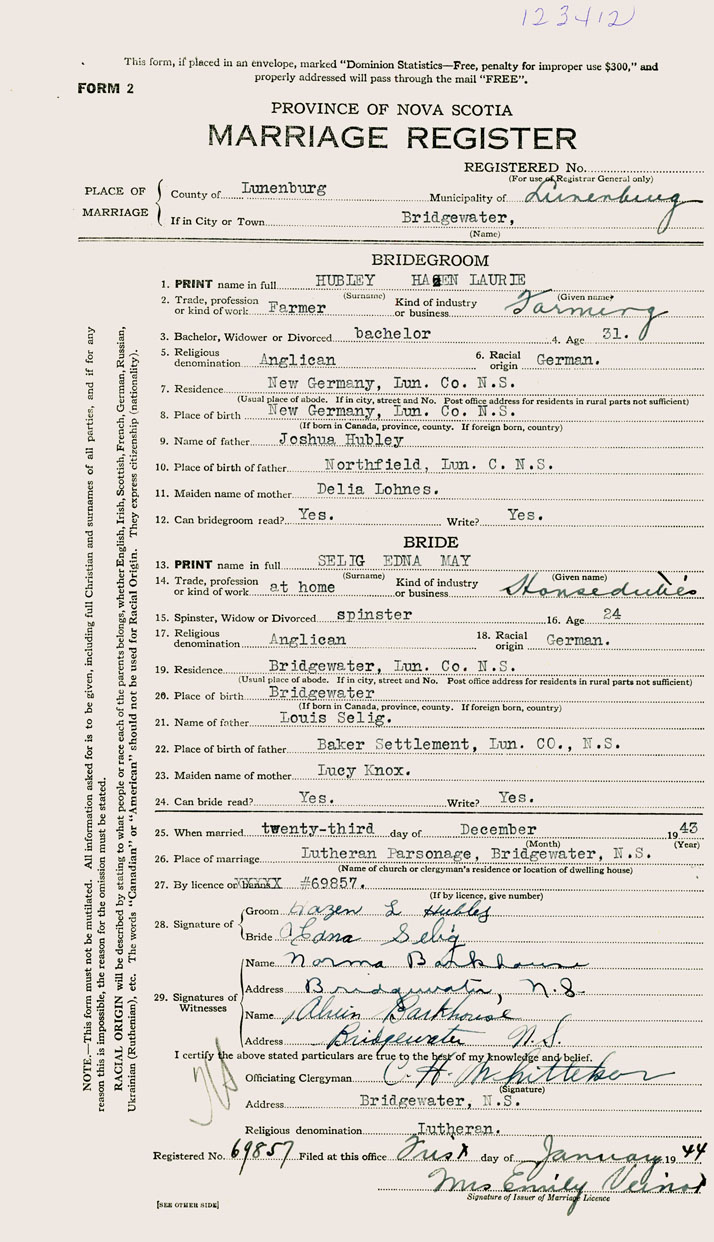 123412
This form, if placed in an envelope, marked "Dominion Statistics—Free, penalty for improper use $300," and
properly addressed will pass through the mail "FREE".
FORM 2
PROVINCE OF NOVA SCOTIA
MARRIAGE REGISTER
REGISTERED No.
(For use of Registrar General only)
PLACE OF MARRIAGE
County of Lunenburg Municipality of Lunenburg
If in City or Town Bridgewater,
(Name)
BRIDEGROOM
1. PRINT name in full HUBLEY HAZEN LAURIE
(Surname) (Given name)
2. Trade, profession or kind of work Farmer Kind of industry or business Farming
3. Bachelor, Widower or Divorced bachelor 4. Age 31.
5. Religious denomination Anglican 6. Racial origin German.
7. Residence New Germany, Lun. Co. N.S.
(Usual place of abode. If in city, street and No. Post office address for residents in rural parts not sufficient)
8. Place of birth New Germany, Lun. Co. N.S.
(If born in Canada, province, county. If foreign born, country)
9. Name of father Joshua Hubley
10. Place of birth of father Northfield, Lun. C. N.S.
11. Maiden name of mother Delia Lohnes.
12. Can bridegroom read? Yes. Write? Yes.
BRIDE
13. PRINT name in full SELIG EDNA MAY
(Surname) (Given name)
14. Trade, profession or kind of work at home Kind of industry or business Houseduties
15. Spinster, Widow or Divorced spinster 16. Age 24
17. Religious denomination Anglican 18. Racial origin German.
19. Residence Bridgewater, Lun. Co. N.S.
(Usual place of abode. If in city, street and No. Post office address for residents in rural parts not sufficient)
20. Place of birth Bridgewater
(If born in Canada, province, county. If foreign born, country)
21. Name of father Louis Selig.
22. Place of birth of father Baker Settlement, Lun. CO., N.S.
23. Maiden name of mother Lucy Knox.
24. Can bride read? Yes. Write? Yes.
25. When married twenty-third day of December 1943
(Month) (Year)
26. Place of marriage Lutheran Parsonage, Bridgewater, N.S.
(Name of church or clergyman's residence or location of dwelling house)
27. By licence or banns #69857.
(If by licence, give number)
28. Signature of
Groom Hazen L Hubley
Bride Edna Selig
29. Signatures of Witnesses
Name Norma Barkhouse
Address Bridgewater, N.S.
Name Alvin Barkhouse
Address Bridgewater N.S.
I certify the above stated particulars are true to the best of my knowledge and belief.
Officiating Clergyman C. H. Whitteker
(Signature)
Address Bridgewater, N.S.
Religious denomination Lutheran.
Registered No. 69857 Filed at this office day of January 1944
Mrs Emily Veinot
Signature of Issuer of Marriage Licence
[SEE OTHER SIDE]
NOTE.—This form must not be mutilated. All information asked for is to be given, including full Christian and surnames of all parties, and if for any
reason this is impossible, the reason for the omission must be stated.
RACIAL ORIGIN will be described by stating to what people or race each of the parents belongs, whether English, Irish, Scottish, French, German, Russian,
Ukrainian (Ruthenian), etc. The words "Canadian" or "American" should not be used for Racial Origin. They express citizenship (nationality).